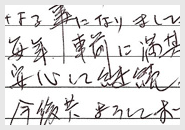 なる事になりまして
毎年 車前に満其
安心して継続
今後共よろしくお